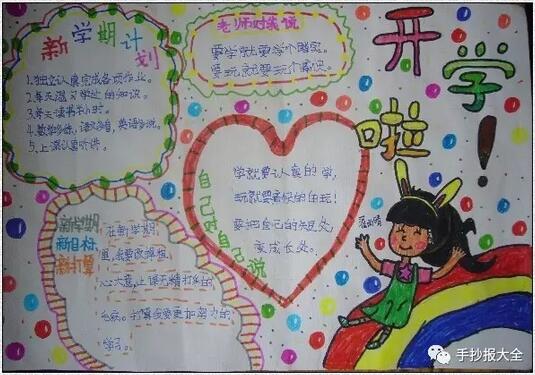 新学期计划
1.独立认真完成各项作业。
2.每天温习学过的知识。
3.每天读书半小时。
4.数学多练，语文多看，英语多说。
5.上课认真听讲。
老师对我说
要学就要学个踏实，
要玩就要玩个痛快。
开学啦！
自己对自己说
学就要认真的学，
玩就要痛快的玩！
要把自己的短处，
变成长处。
新学期
新目标
新打算
在新学期
里，我要改掉粗
心大意，上课无精打采的
毛病。打算我要更加努力的
学习。
手抄报大全